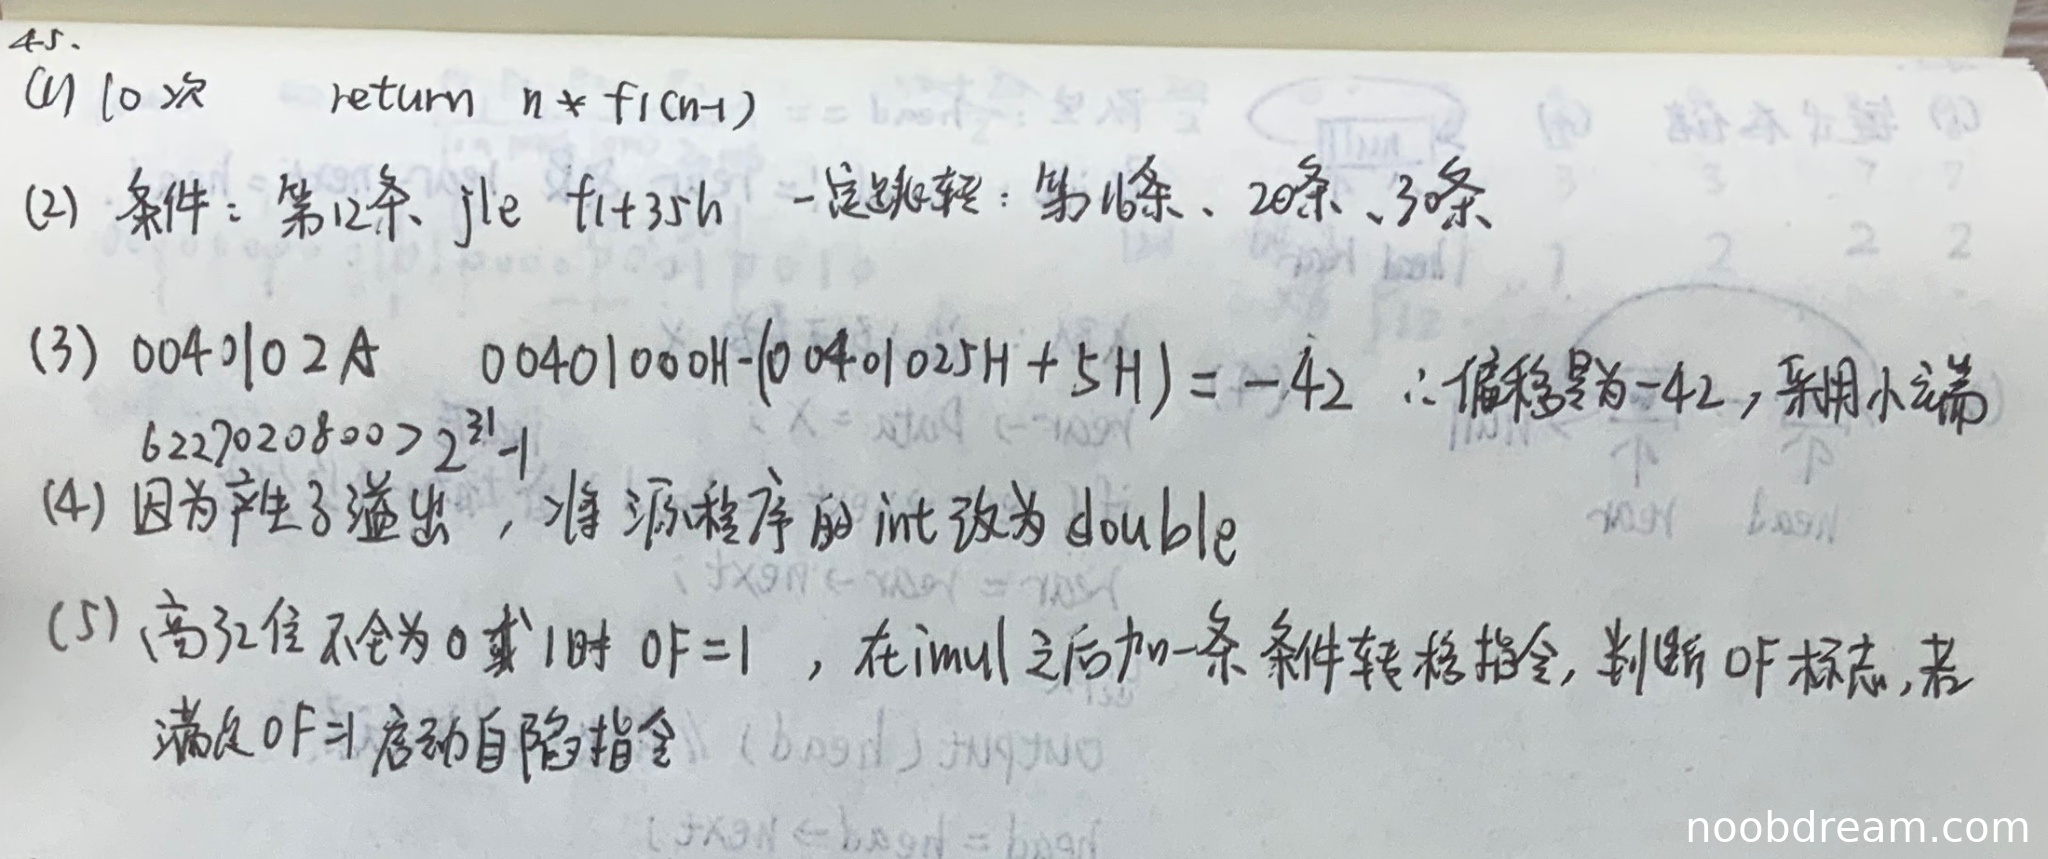 45.
(1) 10次 return n * f1(n-1)
(2) 条件：第12条、jle f1+35h 一定跳转：第16条、20条、30条
(3) 0040102A 00401000H-(00401025H+5H)=-42 ∴偏移量为-42，采用小端
6227020800>2^31-1
(4) 因为产生了溢出，将源程序的int改为double
(5) 高32位不全为0或1时 OF=1，在imul之后加一条条件转移指令，判断OF标志，若
满足OF=1启动自陷指令
noobdream.com